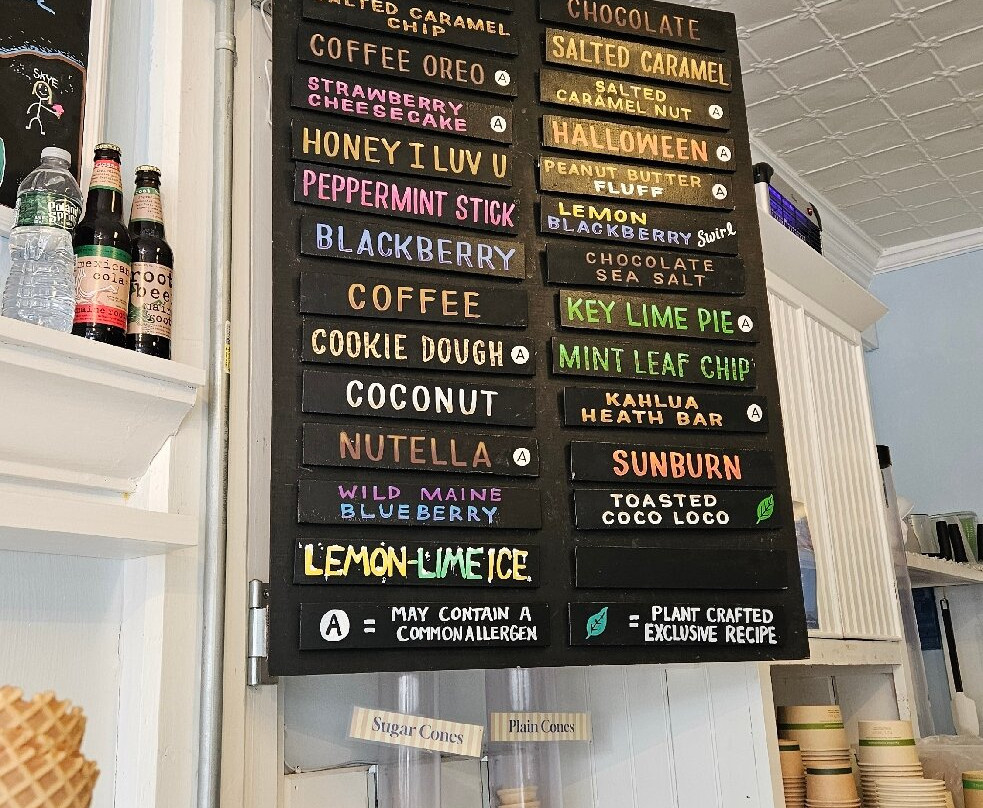 SKYE
Poland
Spring
mexican
cola
maine root
root
beer
maine
root
SALTED CARAMEL
CHIP
COFFEE OREO A
STRAWBERRY
CHEESECAKE A
HONEY I LUV U
PEPPERMINT STICK
BLACKBERRY
COFFEE
COOKIE DOUGH A
COCONUT
NUTELLA A
WILD MAINE
BLUEBERRY
LEMON-LIME ICE
A = MAY CONTAIN A
COMMON ALLERGEN
CHOCOLATE
SALTED CARAMEL
SALTED
CARAMEL NUT A
HALLOWEEN A
PEANUT BUTTER
FLUFF A
LEMON
BLACKBERRY Swirl
CHOCOLATE
SEA SALT
KEY LIME PIE A
MINT LEAF CHIP
KAHLUA
HEATH BAR A
SUNBURN
TOASTED
COCO LOCO
= PLANT CRAFTED
EXCLUSIVE RECIPE
Sugar Cones
Plain Cones